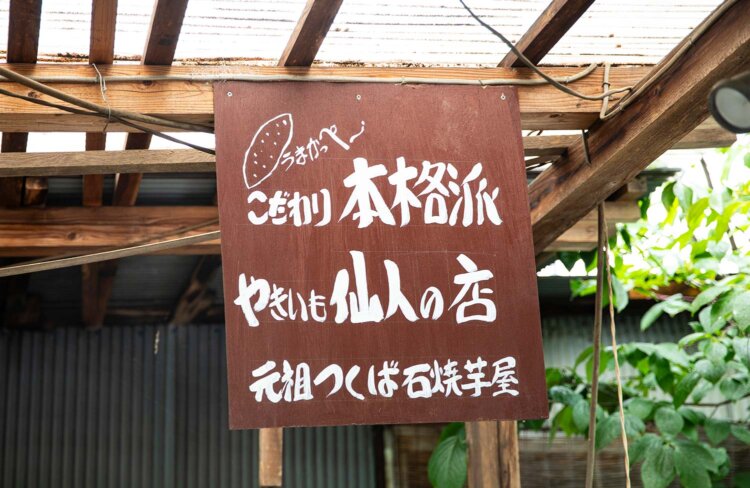 うまかっぺ～
こだわり本格派
やきいも仙人の店
元祖つくば石焼芋屋